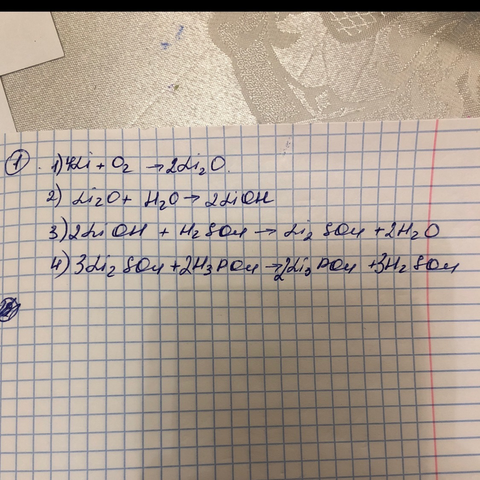 ① 1) 4Li + O₂ → 2Li₂O.
2) Li₂O + H₂O → 2LiOH
3) 2LiOH + H₂SO₄ → Li₂SO₄ + 2H₂O
4) 3Li₂SO₄ + 2H₃PO₄ → 2Li₃PO₄ + 3H₂SO₄